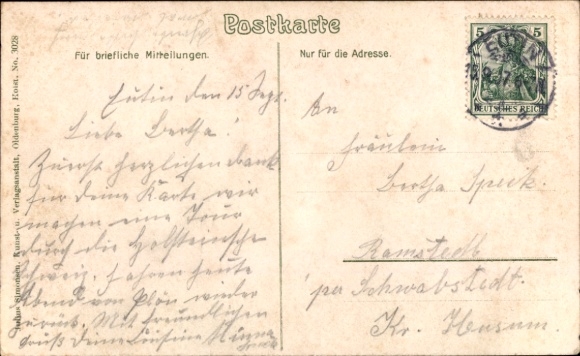 Postkarte
Für briefliche Mitteilungen.
Nur für die Adresse.
5 5
DEUTSCHES REICH
Julius Simonsen, Kunst- u. Verlagsanstalt, Oldenburg, Holst. No. 3028
Eutin den 15 Sept.
Liebe Bertha!
Zuerst herzlichen Dank
für deine Karte wir
machen eine Tour
durch die Holsteinische
Schweiz, fahren heute
Abend von Plön wieder
zurück. Mit freundlichen
Gruß Deine
An
Fräulein
Bertha Speck.
Ramstedt
per Schwabstedt.
Kr. Husum.